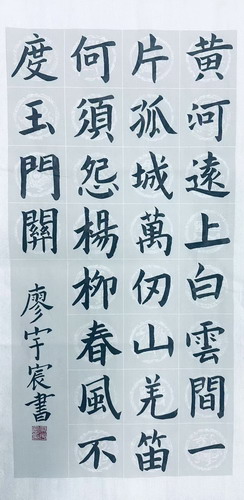 黃河遠上白雲間一
片孤城萬仞山羌笛
何須怨楊柳春風不
度玉門關
廖宇宸書